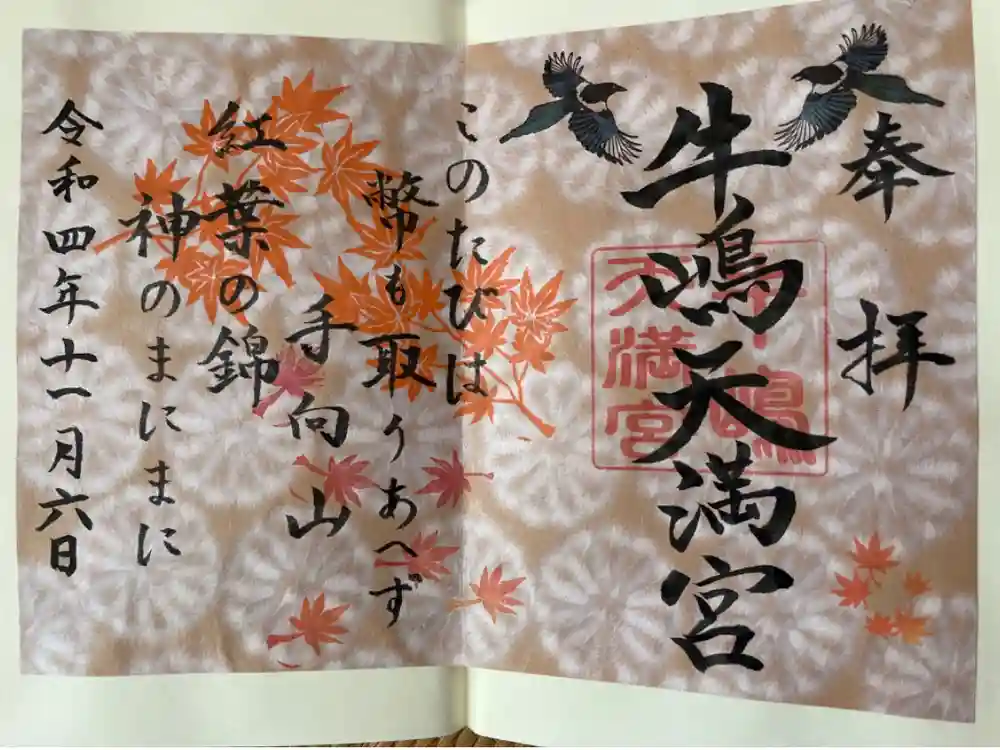 奉拝
牛嶋天満宮
牛嶋天満宮
このたびは
幣も取りあへず
手向山
紅葉の錦
神のまにまに
令和四年十一月六日